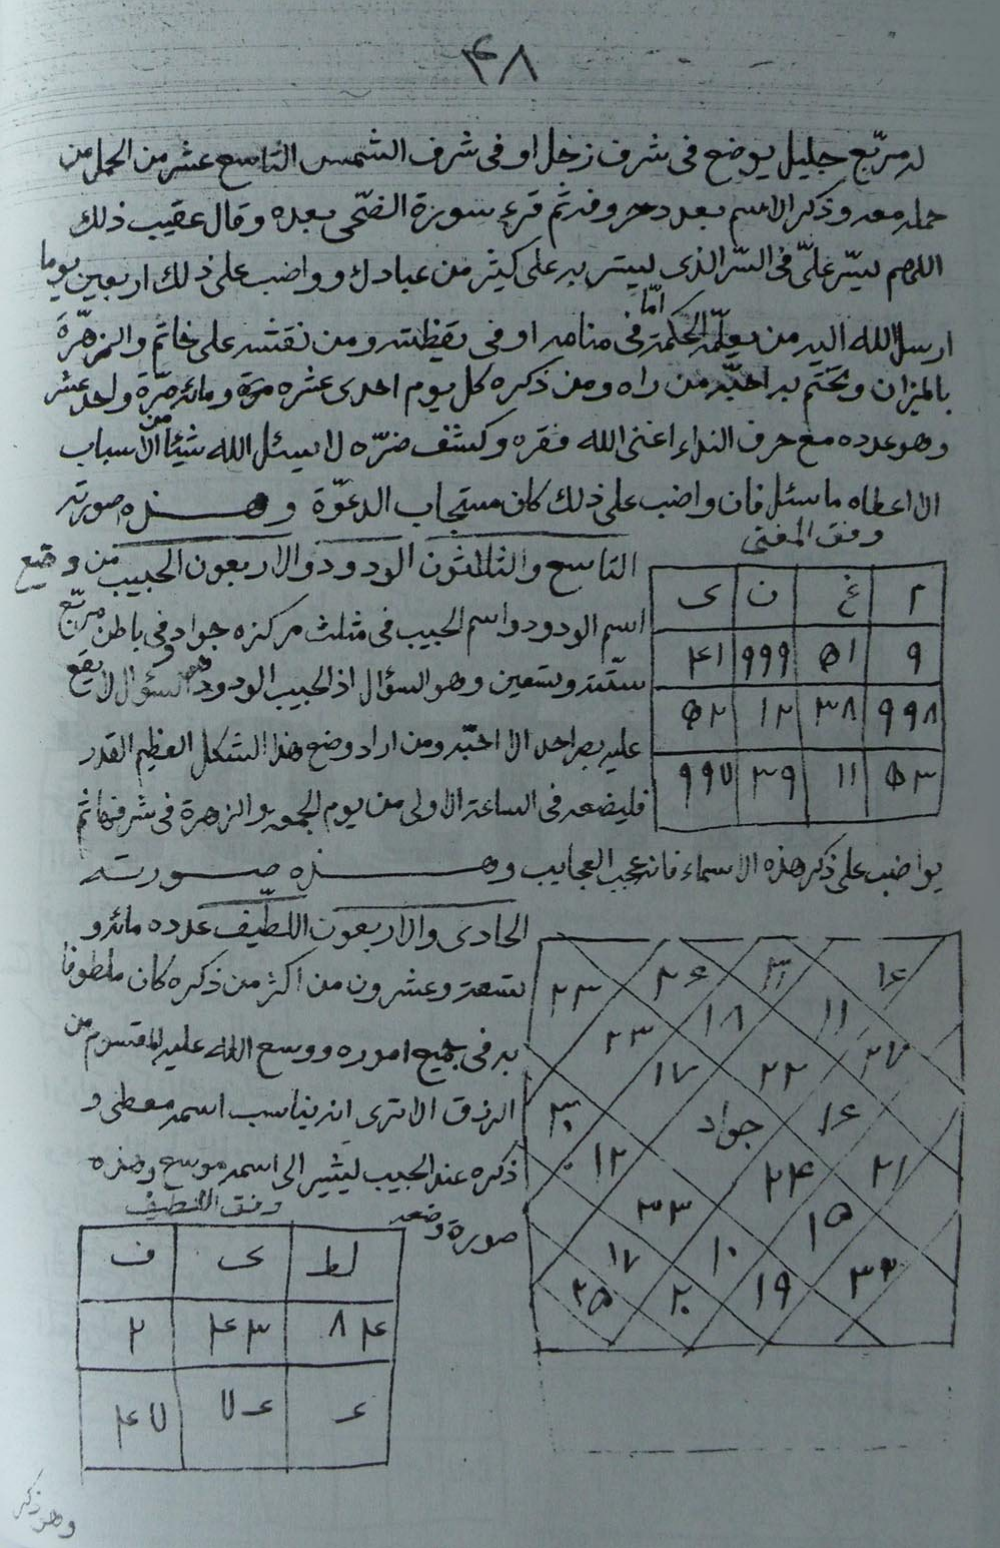 ۴۸
له مربّع جليل يوضع فى شرف زحل او فى شرف الشمس التاسع عشر من الحمل من
حمله معه وذكر الاسم بعدد حروفه ثم قرء سورة الضحى بعده وقال عقيب ذلك
اللهم يسّر علىّ فى السّر الذى ليسّر به على كيثر من عبادك وواضب على ذلك اربعين يوما
ارسل الله اليه من يعلّمه الحكمة امّا فى منامه او فى يقظته ومن نقشه على خاتم والزهرة
بالميزان وتختم به احبّه من راه ومن ذكره كل يوم احدى عشره مرة ومائه مرّة واحد عشر
وهو عدده مع حرف النداء اغنى الله فقره وكشف ضرّه لا يسئل الله شيئا من الاسباب
الا اعطاه ما سئل فان واضب على ذلك كان مستجاب الدعوة وهذه صورته
وفق المغنى
م غ ن ى
۹ ۵۱ ۹۹۹ ۴۱
۹۹۸ ۳۸ ۱۲ ۵۲
۵۳ ۱۱ ۳۹ ۹۹۷
التاسع والثلثون الودود والاربعون الحبيب من وضع
اسم الودود واسم الحبيب فى مثلث مركزه جواد وفى باطن مربّع
ستة وتسعين وهو السؤال اذ الحبيب الودود هو السؤال لا يقع
عليه بصر احد الا احبّه ومن اراد وضع هذا الشكل العظيم القدر
فليضعه فى الساعة الاولى من يوم الجمعه والزهرة فى شرفها ثم
يواضب على ذكر هذه الاسماء فانه عجب العجايب وهذه صورته
۲۳ ۲۶ ۳۱ ۱۶
۲۳ ۱۸ ۱۱ ۲۷
۱۷ ۲۲
۳۰ جواد ۱۶
۱۲ ۲۴ ۲۱
۳۳ ۱۵
۱۷ ۱۰
۲۵ ۲۰ ۱۹ ۳۲
الحادى والاربعون اللطيف عدده مائه و
تسعة وعشرون من اكثر من ذكره كان ملطوفا
به فى جميع اموره ووسع الله عليه المقسوم من
الرزق الا ترى انه يناسب اسمه معطى و
ذكره عند الحبيب ليشير الى اسمه موسع وهذه
صورة وضعه
وفق اللطيف
لط ى ف
۸۴ ۴۳ ۲
ع ۷ع ۴۷
وهو ذكر